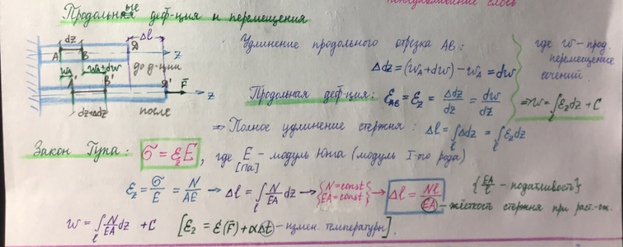 Продольные деф-ция и перемещения
dz
Δl
A B D z
w_A w_A+dw до д-ции
A' B' D' F z
dz+Δdz после
Удлинение продольного отрезка AB:
Δdz = (w_A + dw) - w_A = dw
где w - прод. перемещение сечений
Продольная деф-ция: ε_AB = ε_z = Δdz/dz = dw/dz
⇒ w = ∫_l ε_z dz + C
⇒ Полное удлинение стержня: Δl = ∫_l Δdz = ∫_l ε_z dz
Закон Гука: σ = ε_z E, где E - модуль Юнга (модуль I-го рода)
[Па]
ε_z = σ/E = N/AE ⇒ Δl = ∫_l N/EA dz → {N=const} {EA=const} → Δl = Nl/EA
EA - жёсткость стержня при раст.-сж.
w = ∫_l N/EA dz + C [ε_z = ε(F) + αΔt - измен. температуры].